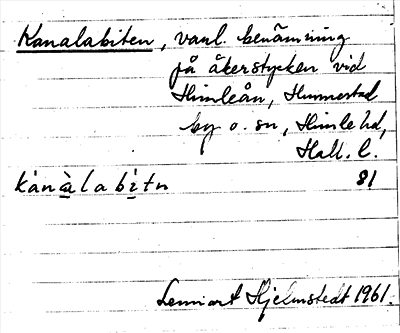 Kanalabiten, vanl. benämning
på åkerstycken vid
Himleån, Hunnestad
by o. sn, Himle hd,
Hall. l.
kànàlabìtn 81
Lennart Hjelmstedt 1961.